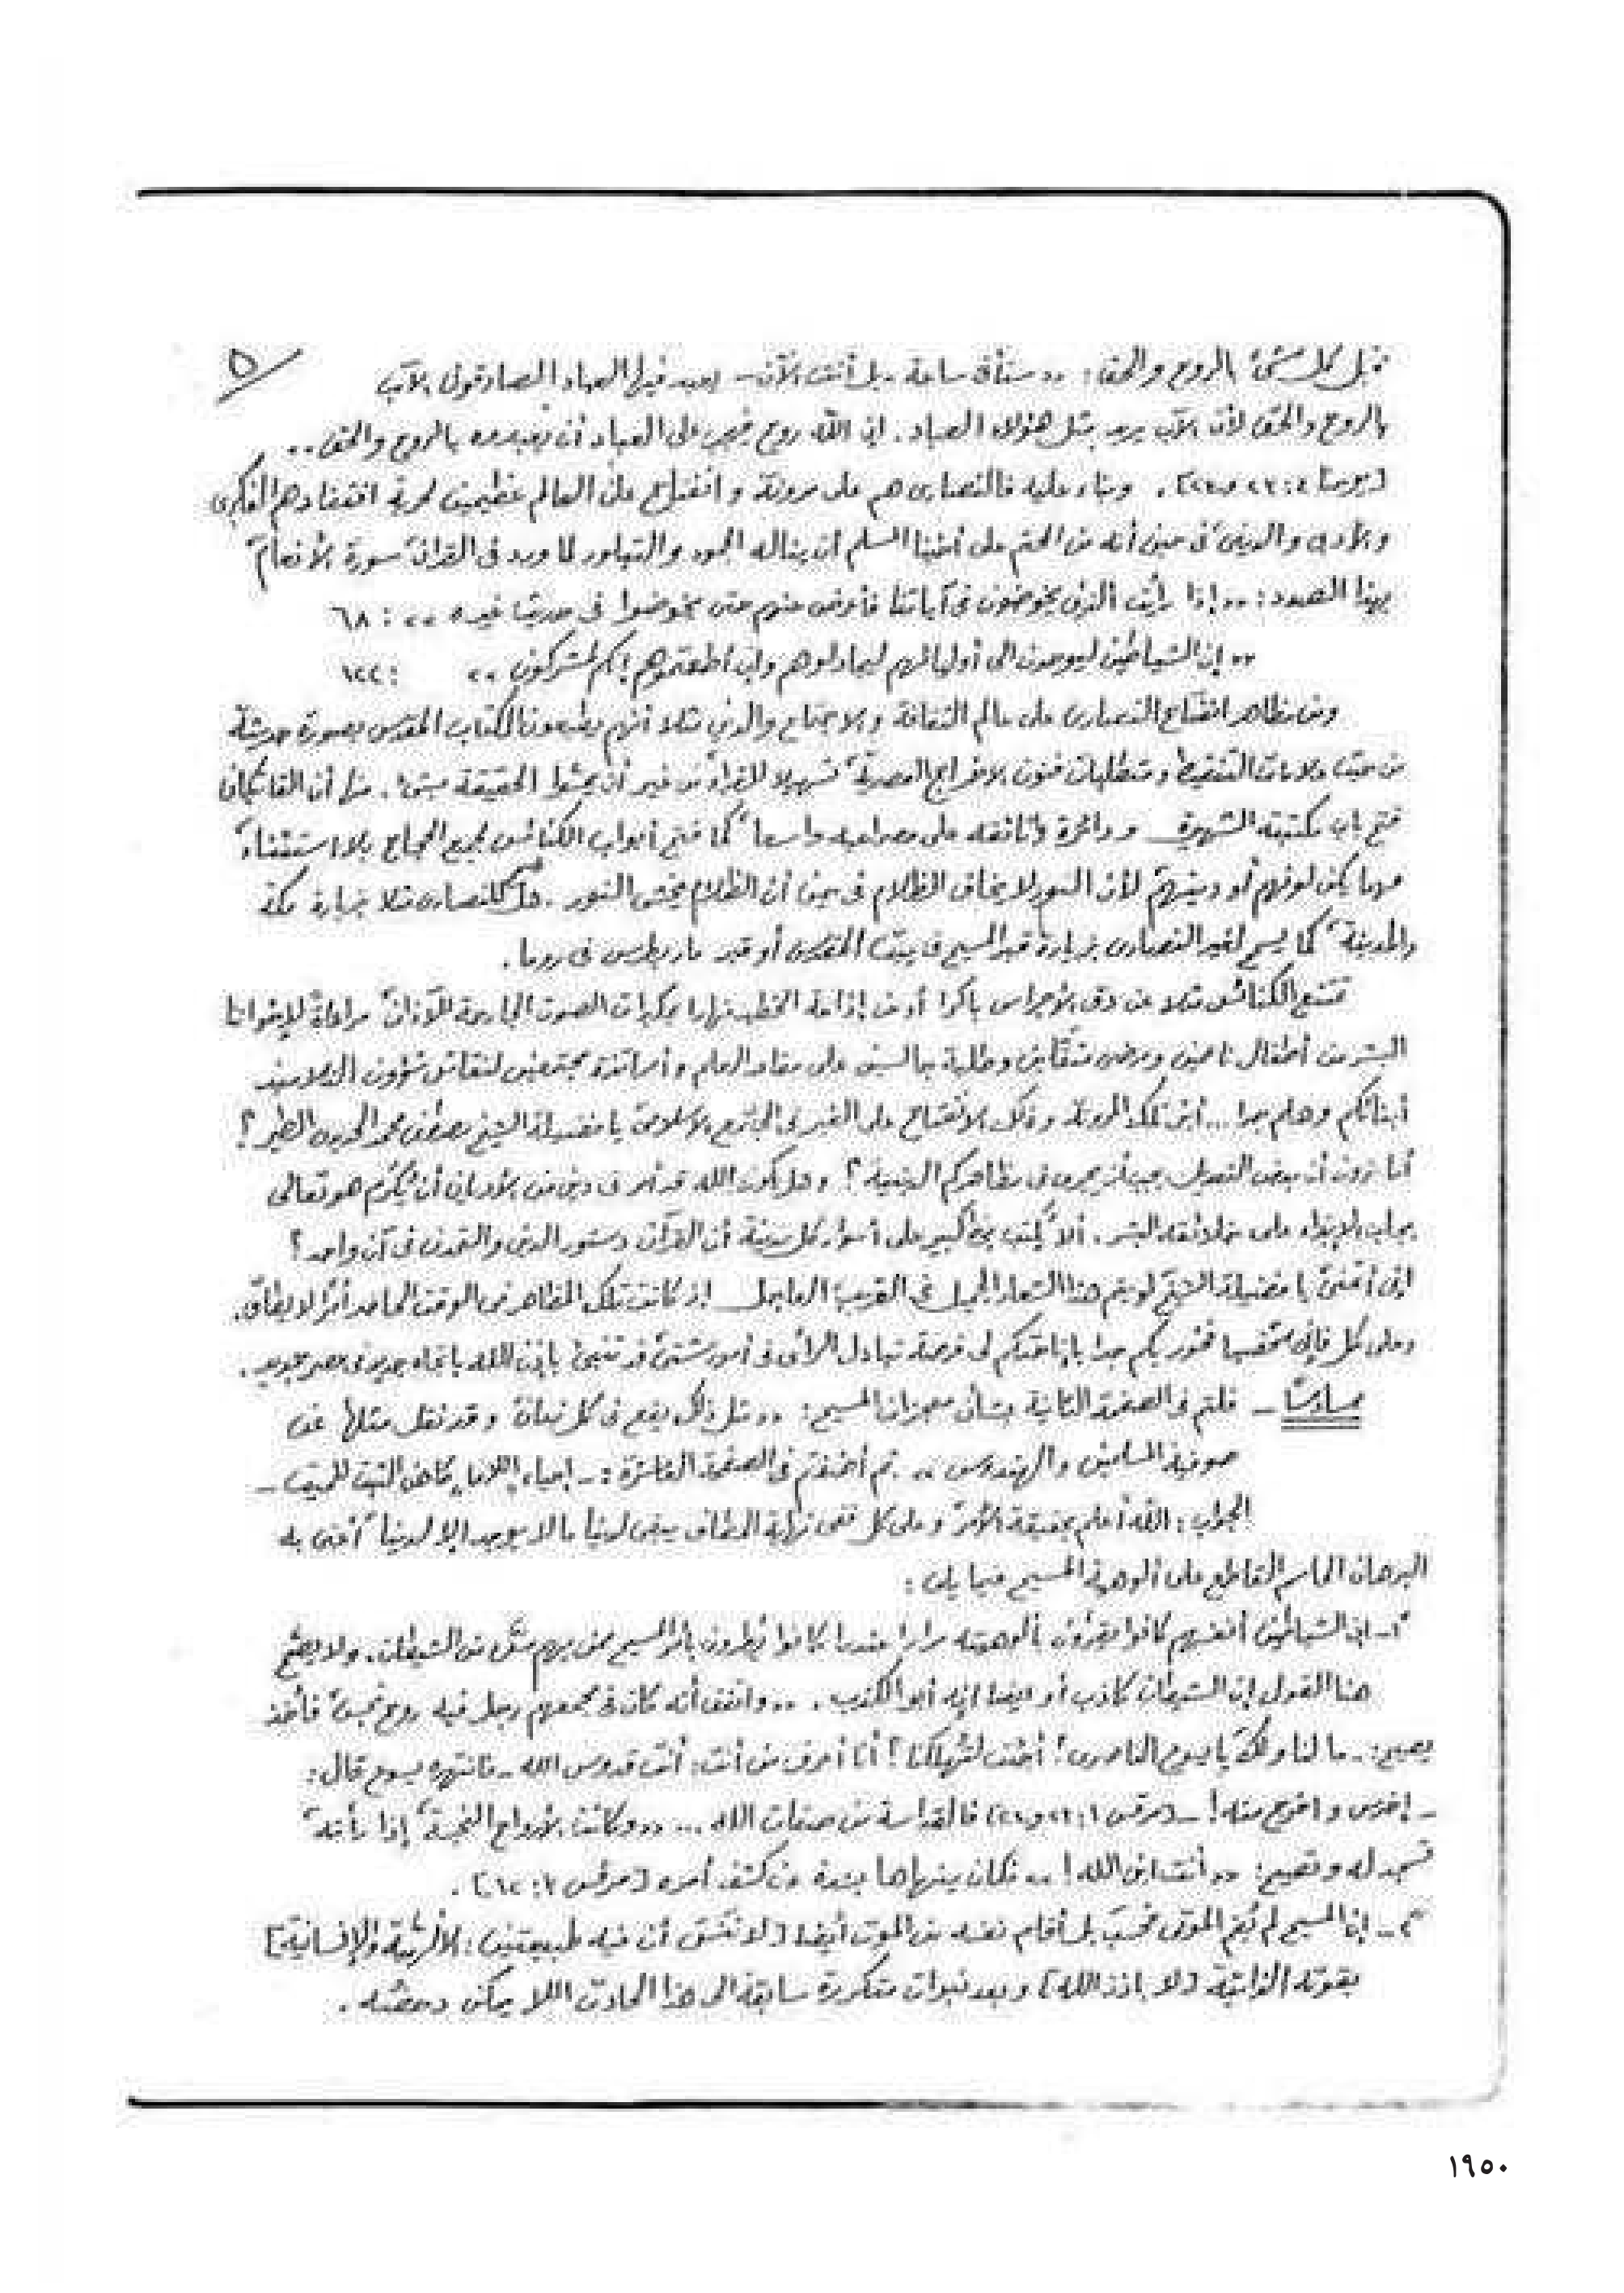 ٥
قبل كل شئ بالروح والحق: ,, ستأتى ساعة - بل أتت الآن - يعبد فيها العباد الصادقون الآب
بالروح والحق لأن الآب يريد مثل هؤلاء العباد. إن الله روح فيجب على العباد أن يعبدوه بالروح والحق,,
[يوحنا ٤: ٢٣ و٢٤]. وبناء عليه فالنصارى هم على مرونة وانفتاح على العالم عظيمين لحرية اعتقادهم الفكرى
والأدبى والدينى فى حين أنه من الحتم على أخينا المسلم أن يناله الجمود والتبلور لما ورد فى القرآن سورة الأنعام
بهذا الصدد: ,, إذا رأيت الذين يخوضون فى آياتنا فأعرض عنهم حتى يخوضوا فى حديث غيره ,, : ٦٨
,, إن الشياطين ليوحون الى أوليائهم ليجادلوهم وإن أطعتموهم إنكم لمشركون ,, : ١٢٢
ومن مظاهر انفتاح النصارى على عالم الثقافة والاجتماع والدين مثلا أنهم يطبعون الكتاب المقدس بصورة حديثة
من حيث علامات التنقيط ومتطلبات فنون الاخراج العصرية تسهيلا للقراء من غير أن يمسوا الحقيقة بشئ. منها أن الفاتيكان
فتح باب مكتبته الشهيرة ودائرة وثائقه على مصراعيه واسعا كما فتح أبواب الكنائس لجميع الحجاج بلا استثناء
مهما يكن لونهم أو دينهم لأن النور لا يخاف الظلام فى حين أن الظلام يخشى النور. هل للنصارى مثلا بزيارة مكة
والمدينة كما يسمح لغير النصارى بزيارة قبر المسيح فى بيت المقدس أو قبر مار بطرس فى روما.
تمتنع الكنائس مثلا عن دق الأجراس باكرا أو من إذاعة الخطب نهارا بمكبرات الصوت الجارحة للآذان مراعاة للإخواننا
البشر من أطفال نائمين ومرضى متألمين وطلبة جالسين على مقاعد العلم وأساتذة مجتمعين لنقاش شؤون التلاميذ
أبنائكم وهلم جرا... أين تلك المرونة وذلك الانفتاح على الغير فى المجتمع الاسلامى يا فضيلة الشيخ مصطفى محمد الحديدى الطير؟
أما ترون أن بعض التعديل يجب أن يجرى فى مظاهركم الدينية؟ وهل يكون الله قد أمر فى دين من الأديان أن يُكرَم هو تعالى
بجلب الإيذاء على خلائقه البشر. ألا يُكتب بخط كبير على أسوار كل مدينة أن القرآن دستور الدين والتمدن فى آن واحد؟
إنى أتمنى يا فضيلة الشيخ لو يغير هذا الشعار الجميل فى القريب العاجل إذ كانت تلك المظاهر فى الوقت الحاضر أمرا لا يطاق.
وعلى كل فإنى شخصيا فخور بكم جدا بإتاحتكم لى فرصة تبادل الرأى فى أمور شتى قد تنبئ بإذن الله باتجاه جديد فى عصر جديد.
سادسًا - قلتم فى الصفحة الثانية بشأن معجزات المسيح: ,, مثل ذلك يقع فى كل زمان وقد نقل مثلها عن
صوفية المسلمين والهندوس ,, ثم أضفتم فى الصفحة العاشرة: - إحياء
الجواب: الله أعلم بحقيقة الأمر وعلى كل ففى نهاية المطاف يبقى لدينا ما لا يوجد إلا لدينا أعنى به
البرهان الحاسم القاطع على ألوهية المسيح فيما يلى:
١- إن الشياطين أنفسهم كانوا يقرون بألوهيته مرارا عندما كانوا يُطردون بأمر المسيح ممن بهم مسّ من الشيطان. ولا يصح
هنا القول إن الشيطان كاذب أو أيضا إنه أبو الكذب. ,, واتفق أنه كان فى مجمعهم رجل فيه روح نجس فأخذ
يصيح: - ما لنا ولك يا يسوع الناصرى! أجئت لتُهلكنا! أنا أعرف من أنت: أنت قدوس الله - فانتهره يسوع قال:
- إخرس واخرج منه! - [مرقس ١: ٢٣ و٢٤] فالقداسة من صفات الله ... ,, وكانت الأرواح النجسة إذا رأته
تسجد له وتصيح: ,, أنت ابن الله! ,, فكان ينهاها بشدة عن كشف أمره [مرقس ٣: ١٢].
٢- إن المسيح لم يُقم الموتى فحسب بل أقام نفسه من الموت أيضا [لا تنسَ أن فيه طبيعتين: الإلهية والإنسانية]
بقوته الذاتية [لا بإذن الله] وبعد نبوات متكررة سابقة الى هذا الحادث اللا يمكن دحضه.
١٩٥٠